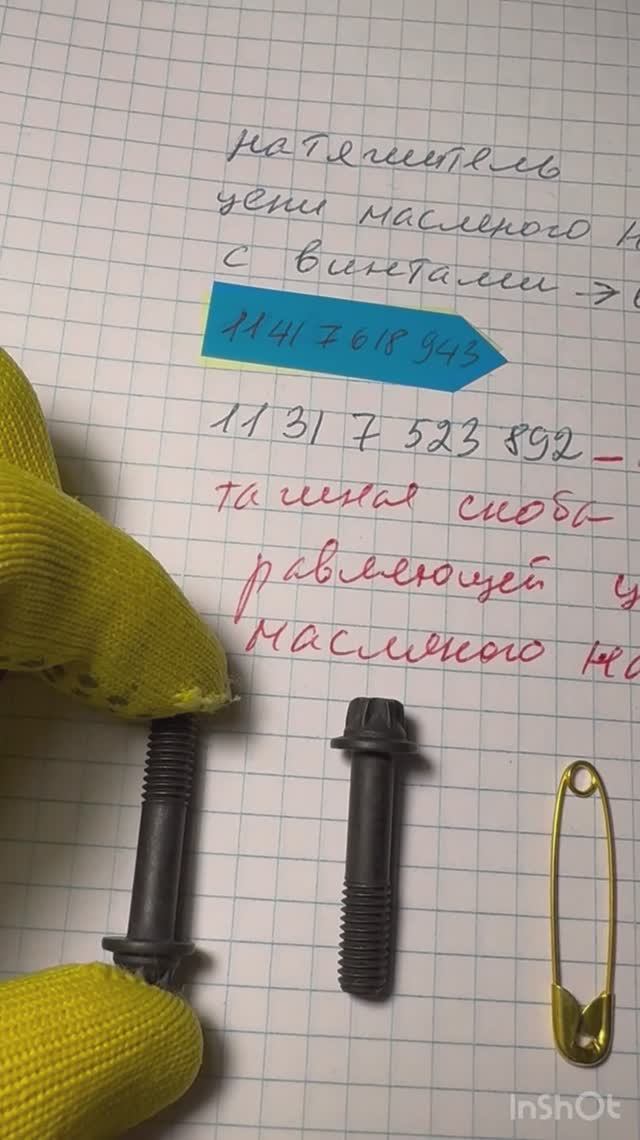 натяжитель
цепи масляного н
с винтами →
11417618943
11 31 7 523 892 –
тажная скоба
равляющей ц
масляного на
InShOt